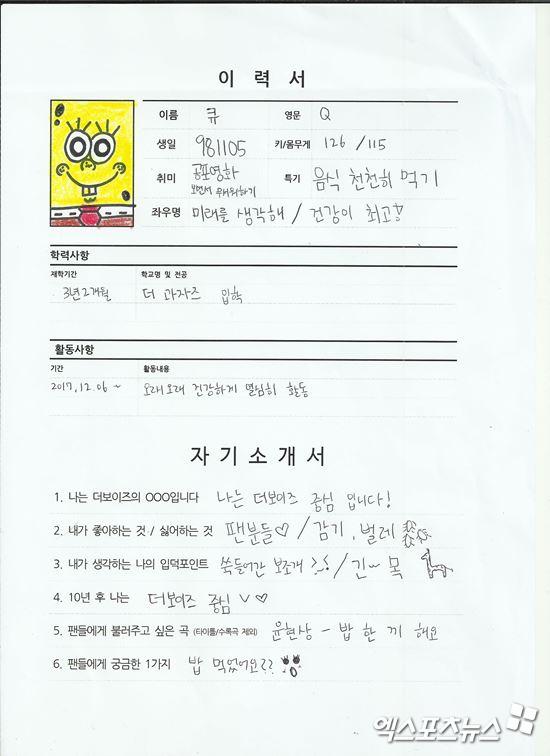 이 력 서
이름 큐 영문 Q
생일 981105 키/몸무게 126 / 115
취미 공포영화 특기 음식 천천히 먹기
보면서
좌우명 미래를 생각해 / 건강이 최고
학력사항
재학기간 학교명 및 전공
3년2개월 더 과자즈 입학
활동사항
기간 활동내용
2017.12.06 ~ 오래오래 건강하게 열심히 활동
자 기 소 개 서
1. 나는 더보이즈의 OOO입니다 나는 더보이즈 중심 입니다!
2. 내가 좋아하는 것 / 싫어하는 것 팬분들♡ / 감기, 벌레
3. 내가 생각하는 나의 입덕포인트 쏙들어간 보조개 / 긴~ 목
4. 10년 후 나는 더보이즈 중심 ♡
5. 팬들에게 불러주고 싶은 곡 (타이틀/수록곡 제외) 윤현상 - 밥 한 끼 해요
6. 팬들에게 궁금한 1가지 밥 먹었어요??
엑스포츠뉴스